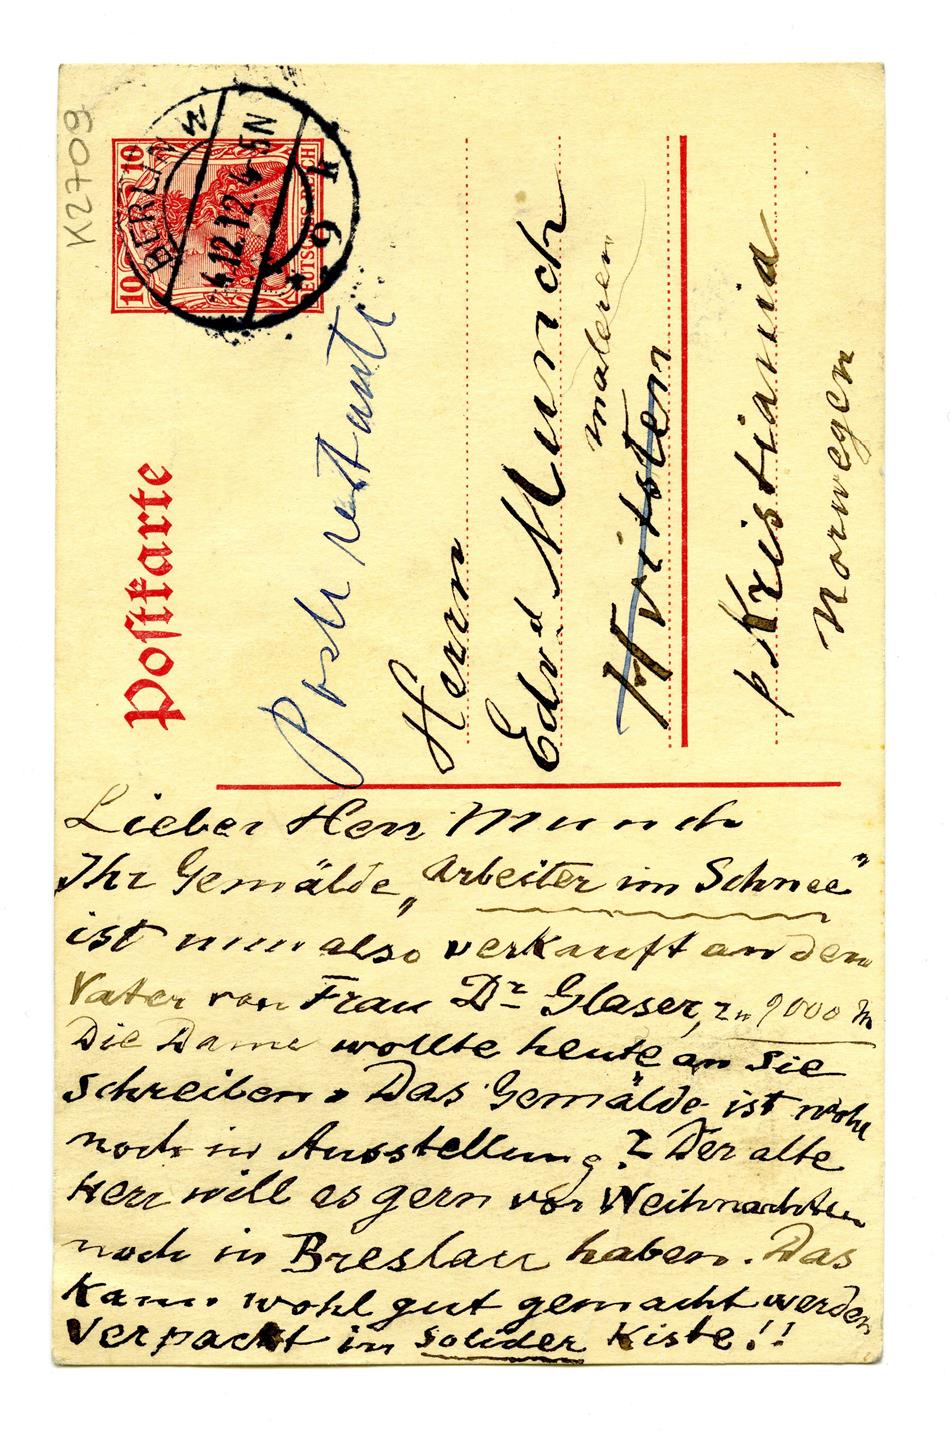 K2709
10 10
DEUTSCHES REICH
BERLIN W
4.12.12.4-5N
* 9 k
Postkarte
Herrn
Edvd Munch
maleren
Hvitsten
p Kristiania
Norwegen
Lieber Herr Munch
Ihr Gemälde „Arbeiter im Schnee"
ist nun also verkauft an den
Vater von Frau Dr Glaser, zu 9000 M
Die Dame wollte heute an Sie
schreiben. Das Gemälde ist wohl
noch in Ausstellung? Der alte
Herr will es gern vor Weihnachten
noch in Breslau haben. Das
kann wohl gut gemacht werden
Verpackt in solider Kiste!!